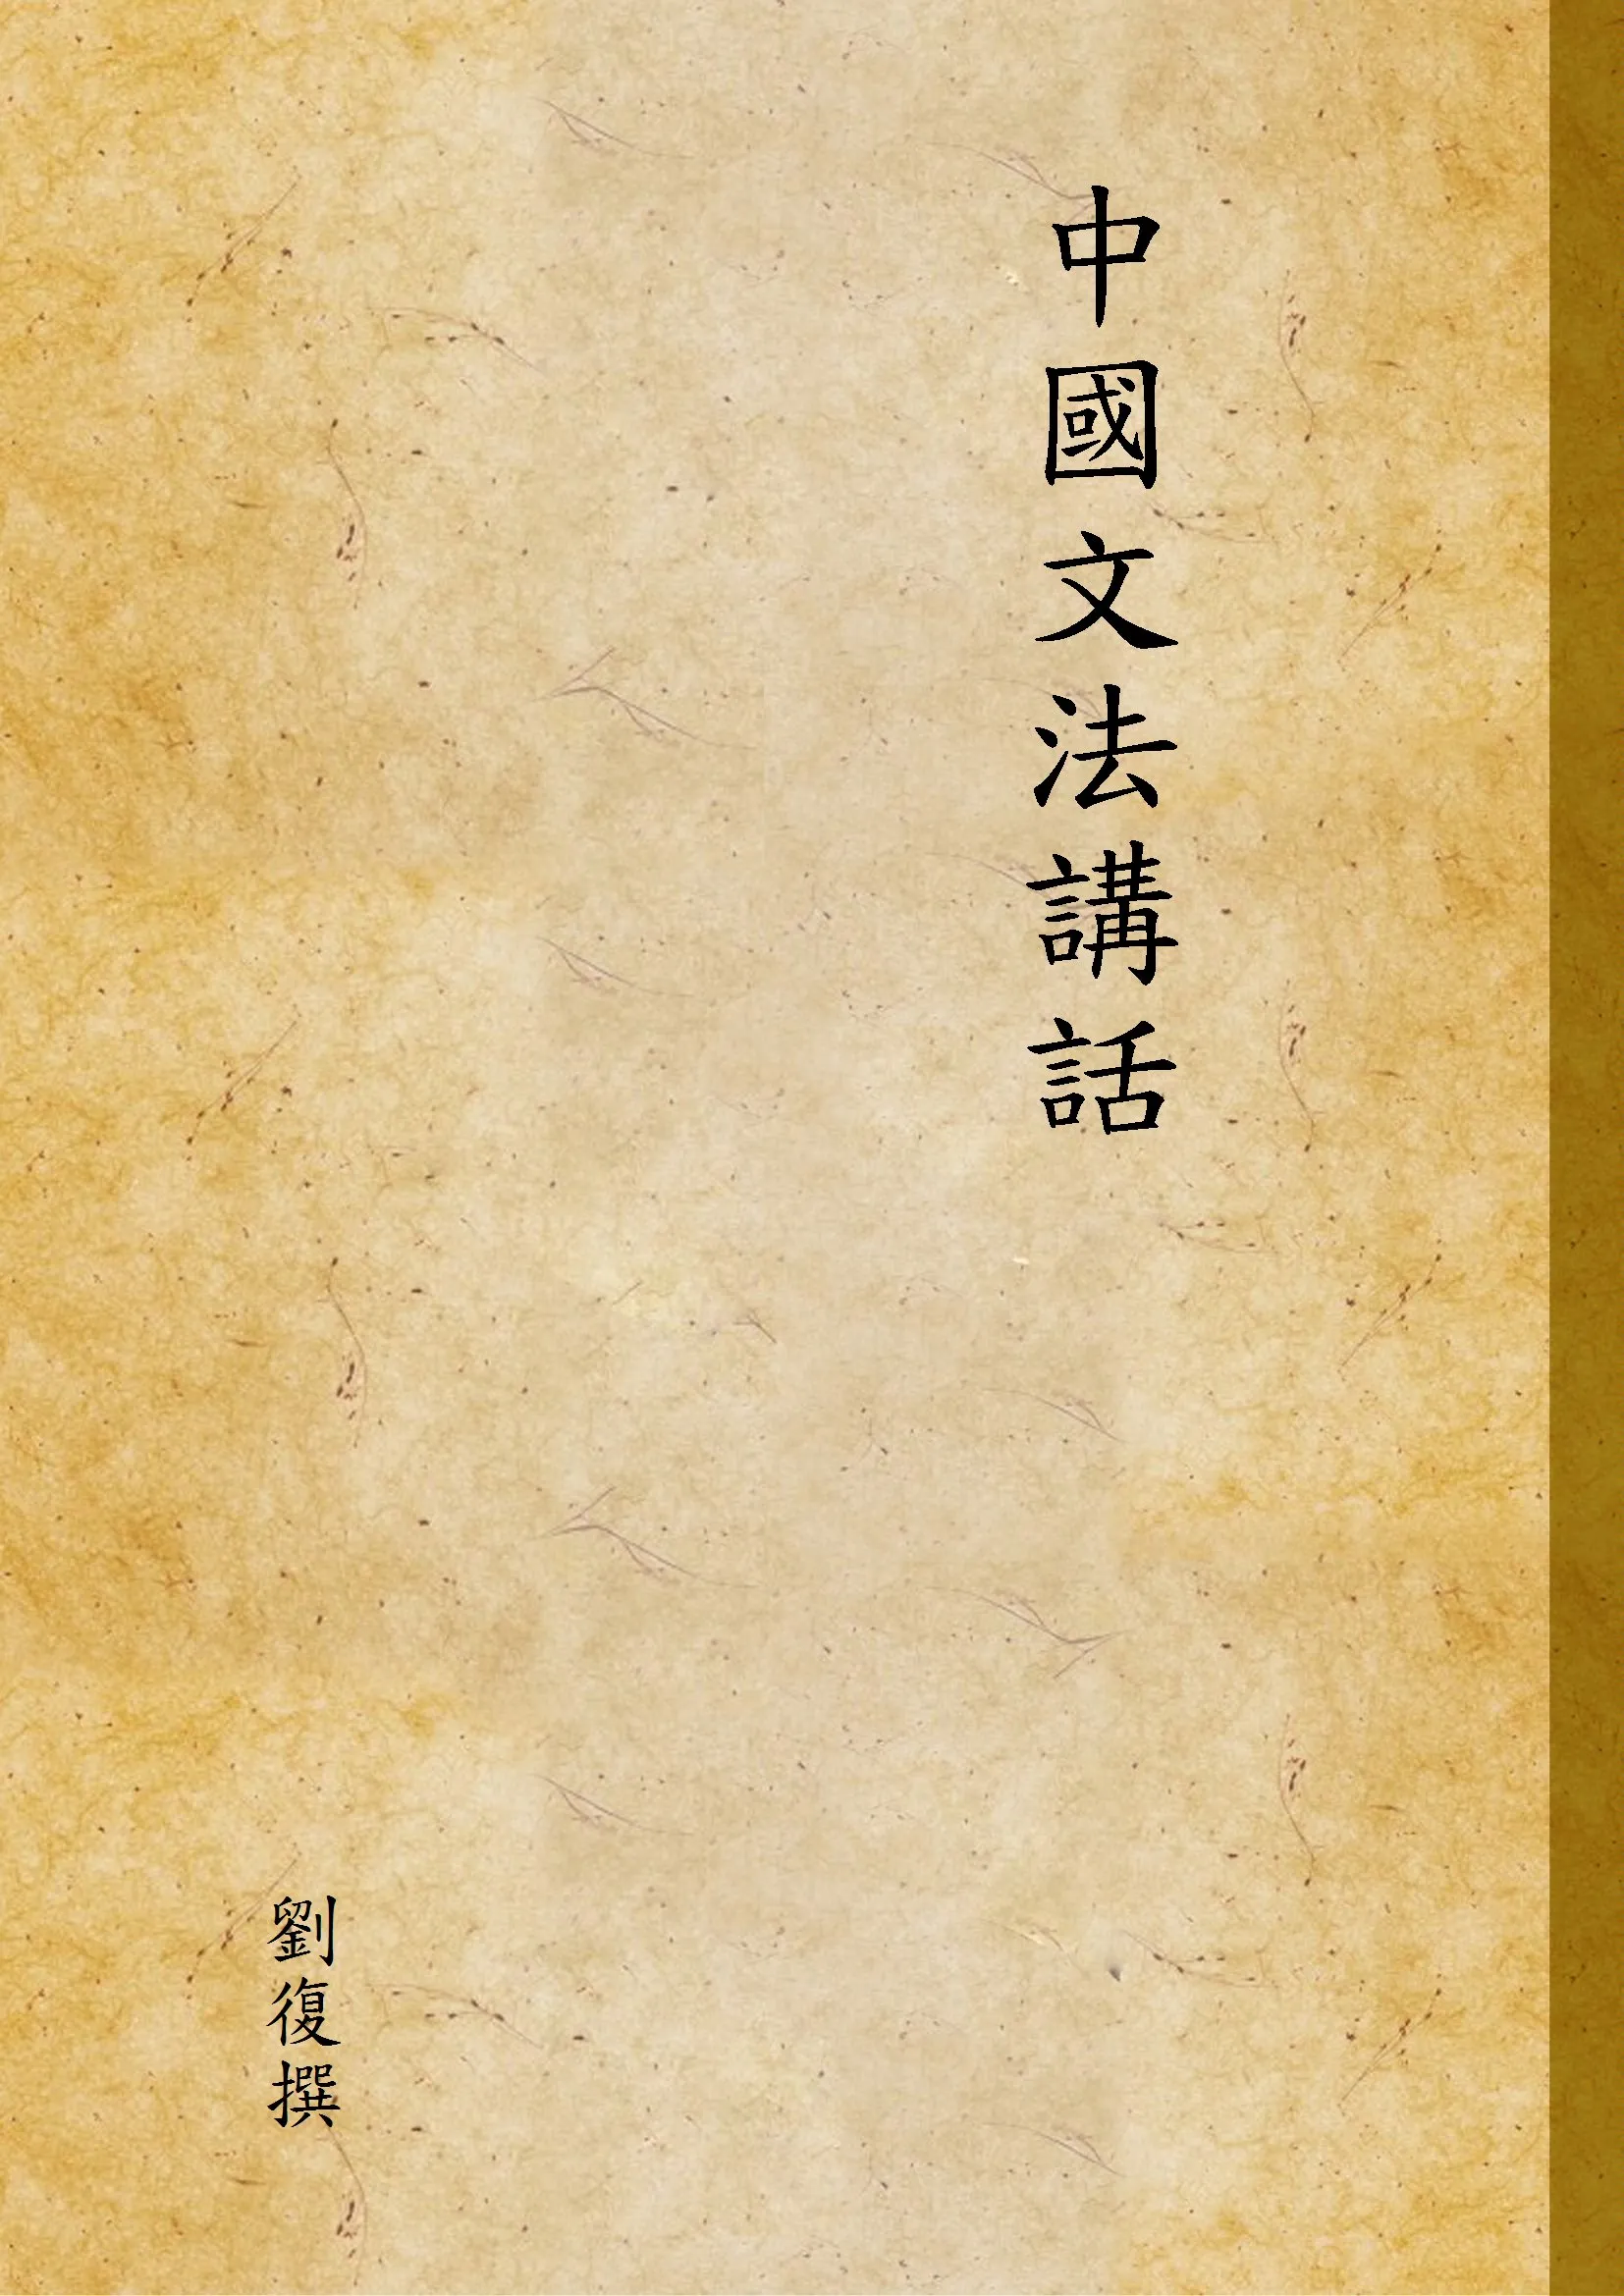 中國文法講話
劉復撰